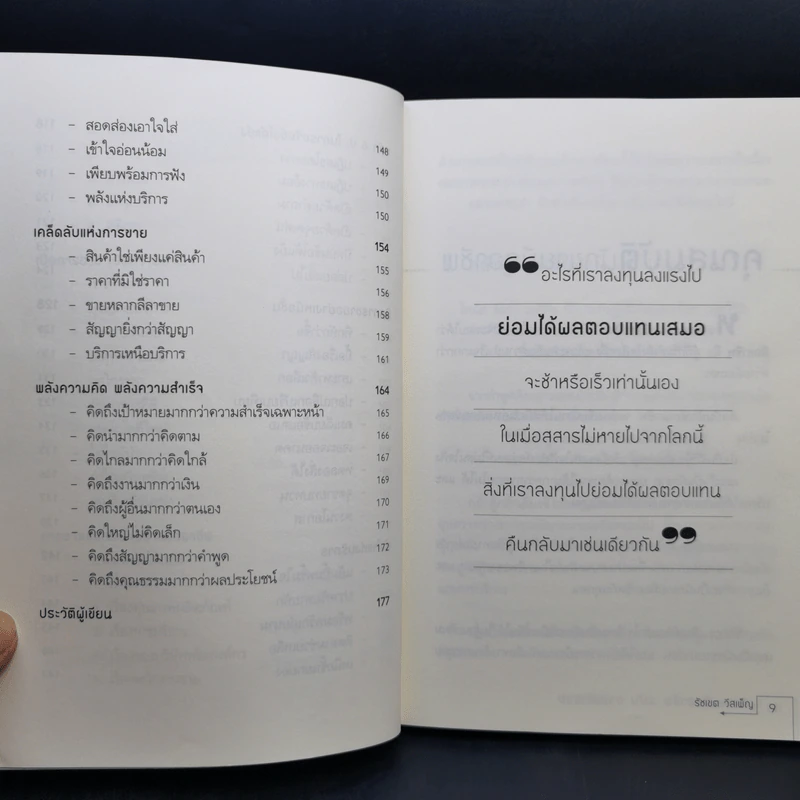 - สอดส่องเอาใจใส่ 148
- เข้าใจอ่อนน้อม 149
- เพียบพร้อมการฟัง 150
- พลังแห่งบริการ 150
เคล็ดลับแห่งการขาย 154
- สินค้าใช่เพียงแค่สินค้า 155
- ราคาที่มิใช่ราคา 156
- ขายหลากลีลาขาย 158
- สัญญายิ่งกว่าสัญญา 159
- บริการเหนือบริการ 161
พลังความคิด พลังความสำเร็จ 164
- คิดถึงเป้าหมายมากกว่าความสำเร็จเฉพาะหน้า 165
- คิดนำมากกว่าคิดตาม 166
- คิดไกลมากกว่าคิดใกล้ 167
- คิดถึงงานมากกว่าเงิน 169
- คิดถึงผู้อื่นมากกว่าตนเอง 170
- คิดใหญ่ไม่คิดเล็ก 171
- คิดถึงสัญญามากกว่าคำพูด 172
- คิดถึงคุณธรรมมากกว่าผลประโยชน์ 173
ประวัติผู้เขียน 177
❝อะไรที่เราลงทุนลงแรงไป
ย่อมได้ผลตอบแทนเสมอ
จะช้าหรือเร็วเท่านั้นเอง
ในเมื่อสสารไม่หายไปจากโลกนี้
สิ่งที่เราลงทุนไปย่อมได้ผลตอบแทน
คืนกลับมาเช่นเดียวกัน❞
รัชเขต วีสเพ็ญ 9